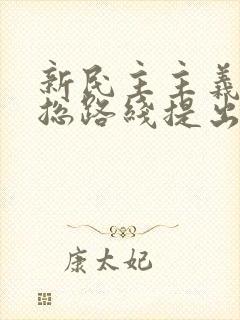 新民主主義
總路綫提出
康太妃